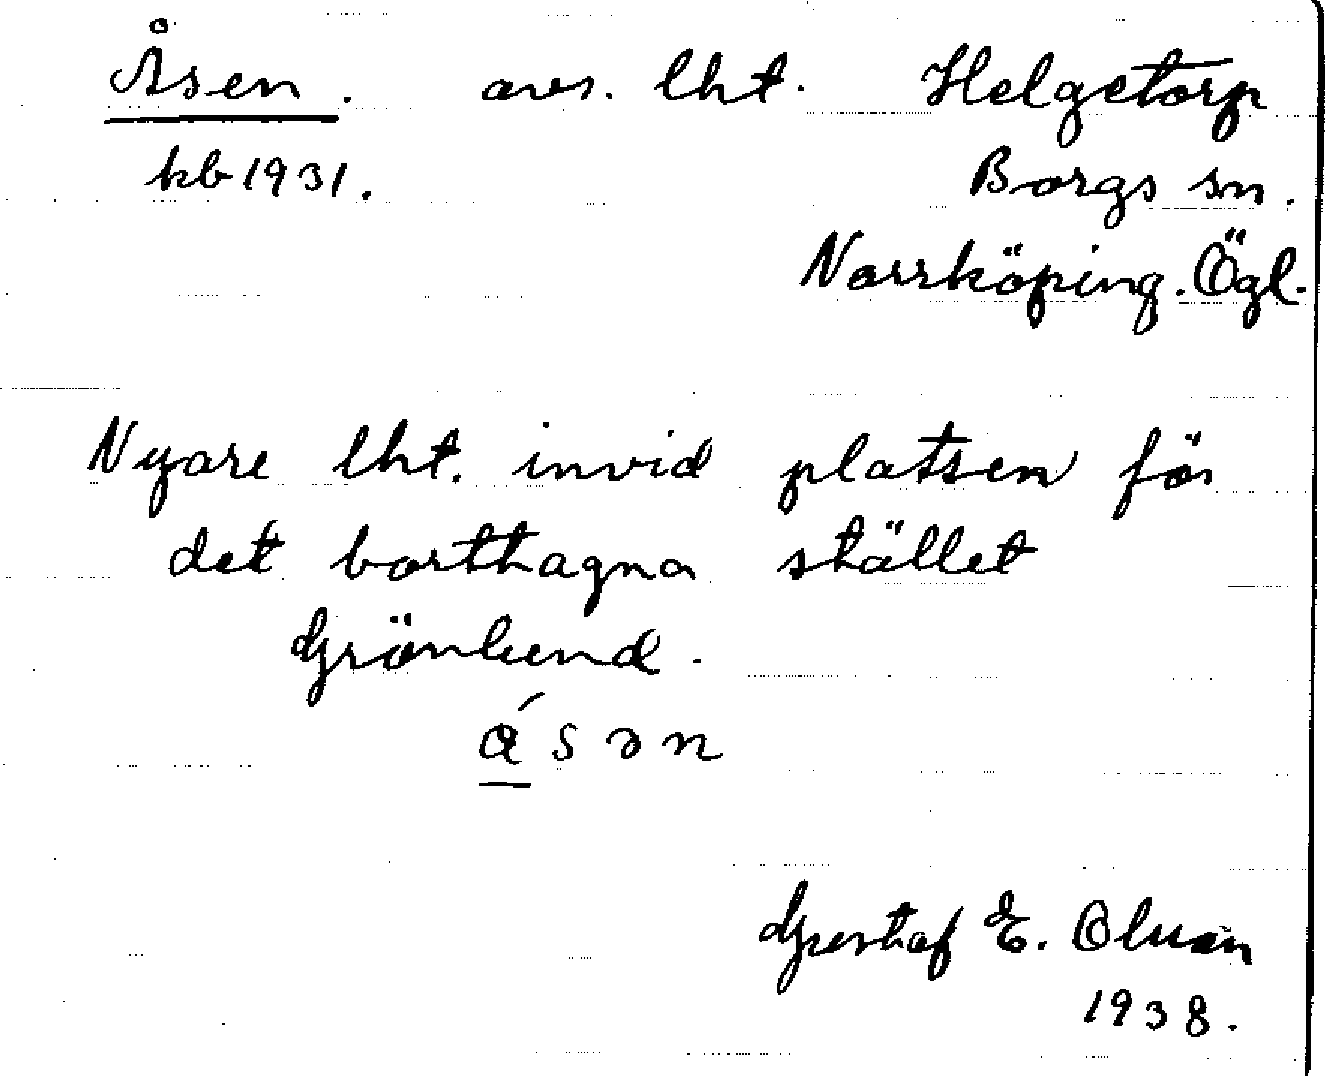 Åsen. avs. lht. Helgetorp
kb 1931. Borgs sn.
Norrköping. Ögl.
Nyare lht. invid platsen för
det borttagna stället
Grönlund.
ásɔn
Gustaf E. Olsson
1938.